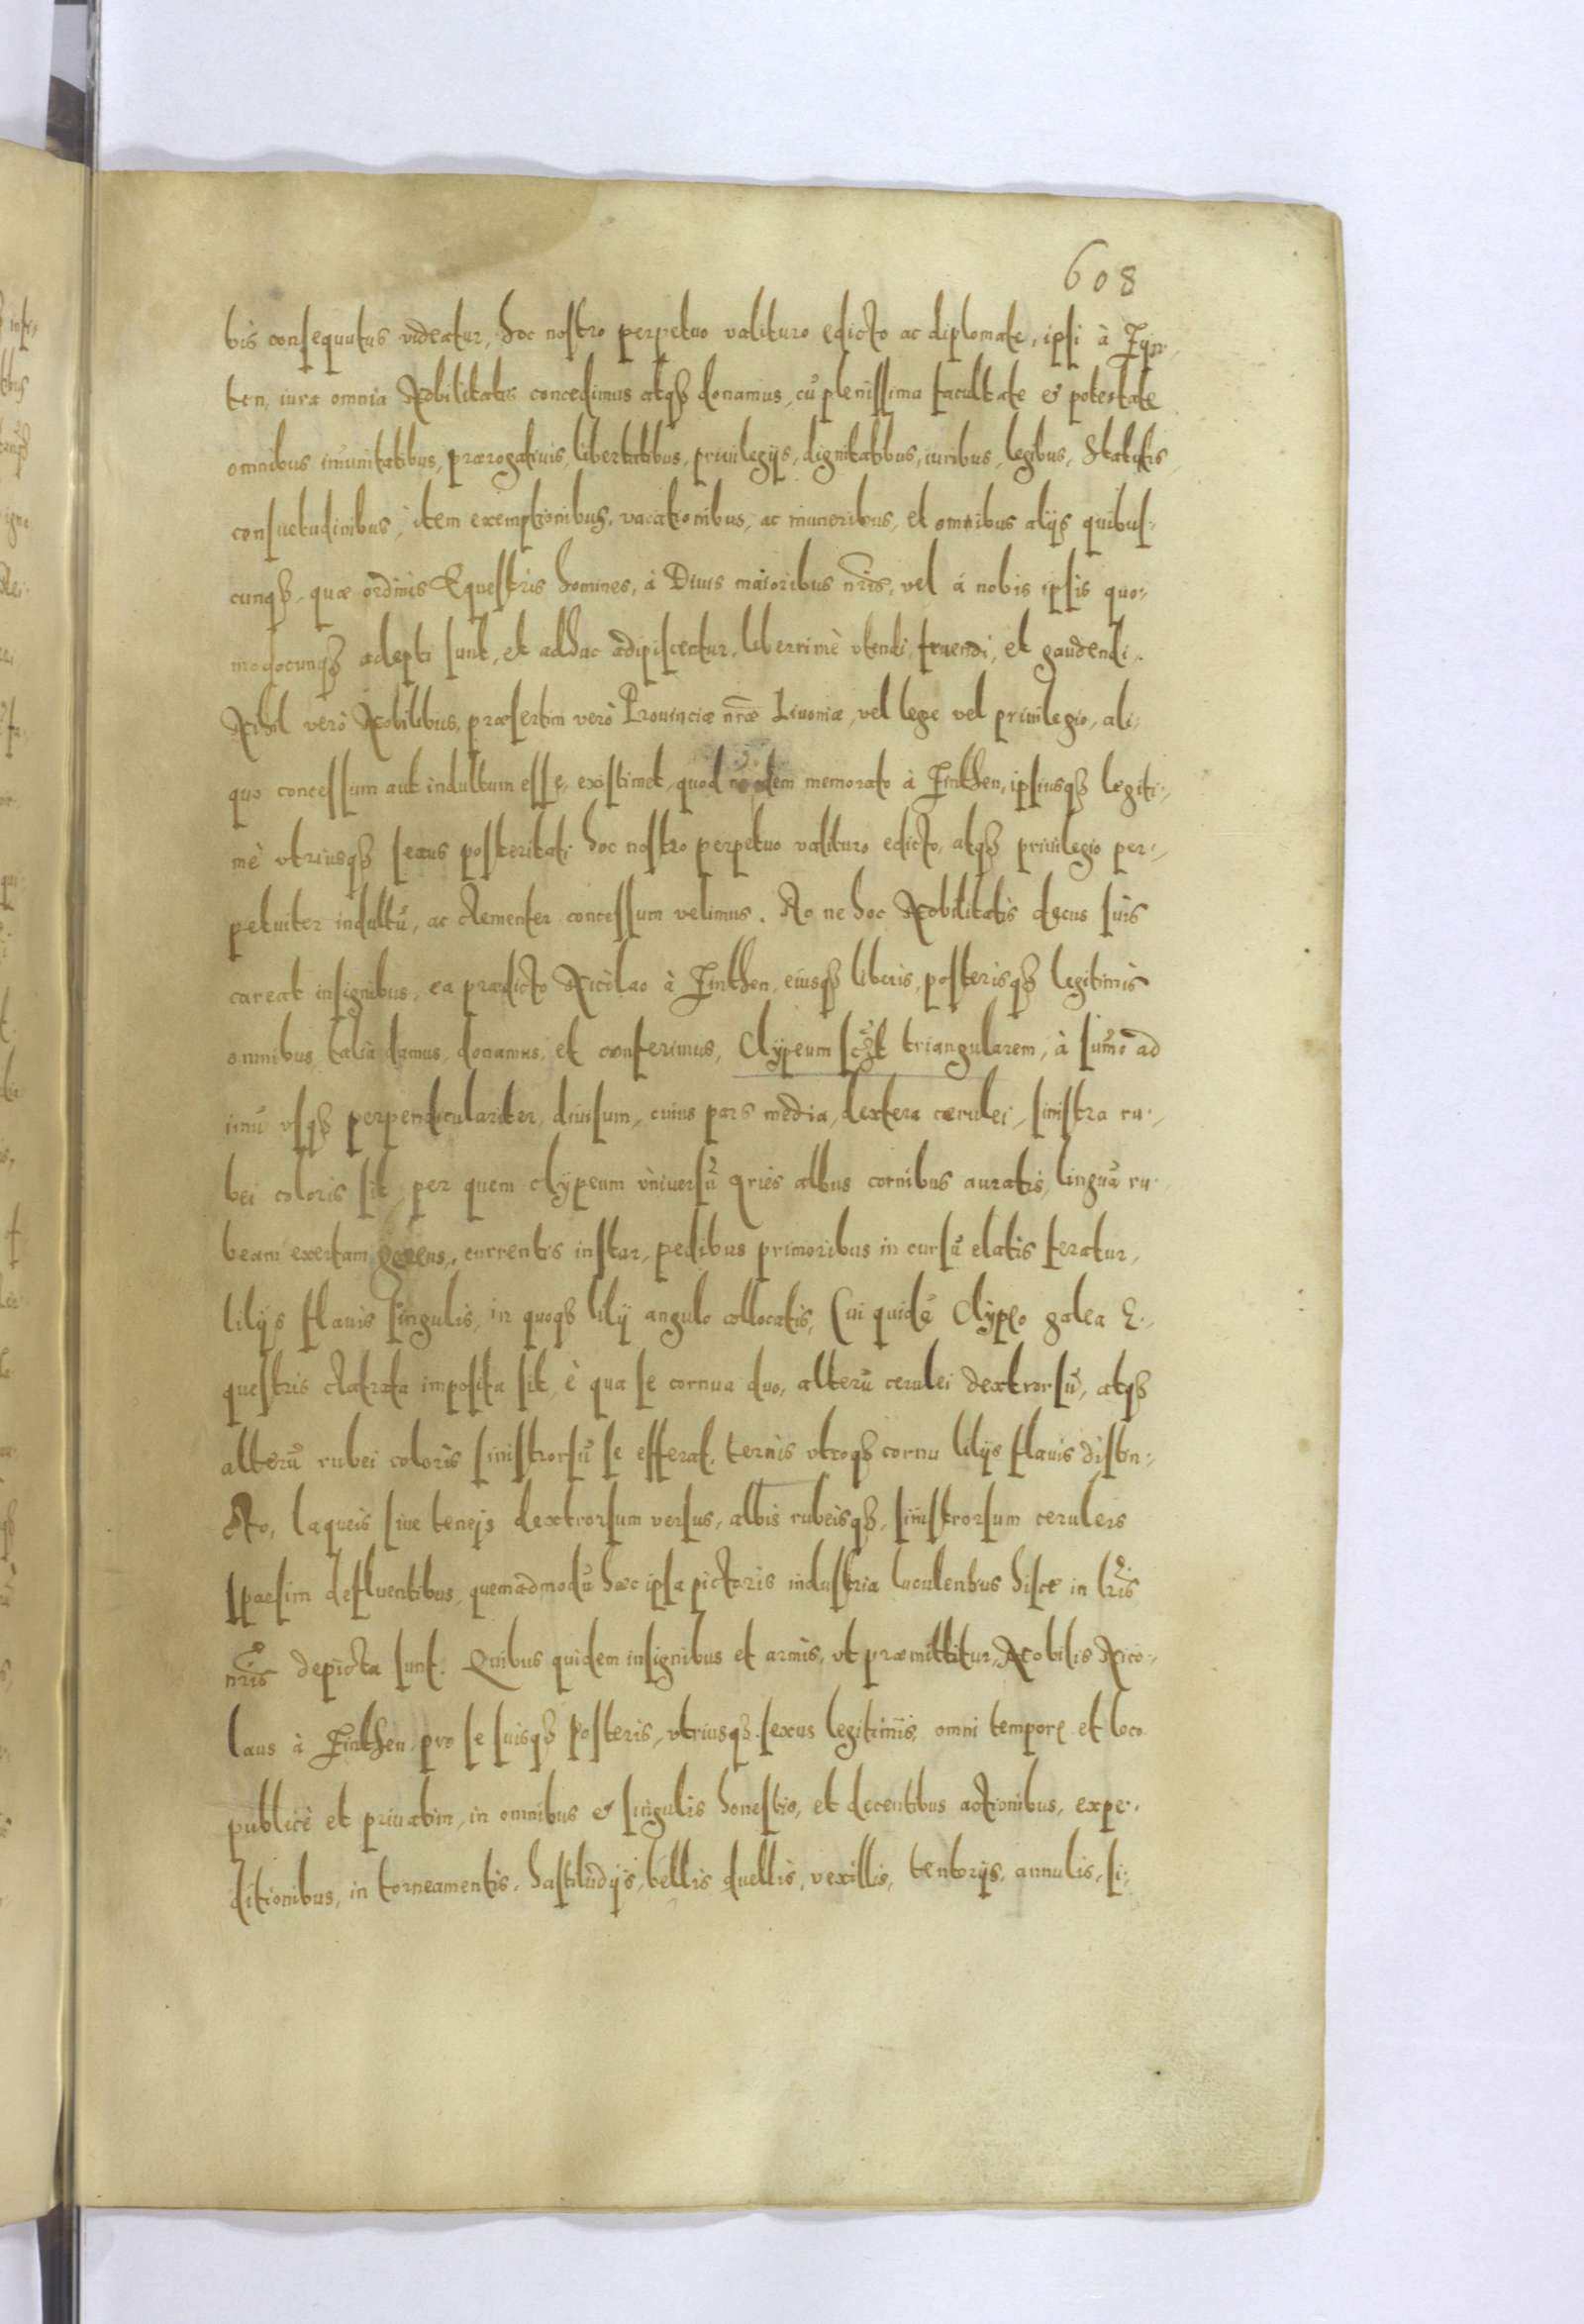 608
bis consequutus videatur, hoc nostro perpetuo valituro edicto ac diplomate, ipsi à Fyn-
ten, iura omnia Nobilitatis concedimus atqȝ donamus, cū plenissima facultate & potestate
omnibus im̄unitatibus, prærogatiuis, libertatibus, priuilegijs, dignitatibus, iuribus, legibus, Statutis,
consuetudinibus, item exemptionibus, vacationibus, ac muneribus, et omnibus alijs quibus-
cunqȝ, quæ ordinis Equestris homines, à Diuis maioribus nr̄is, vel à nobis ipsis quo-
modocunqȝ adepti sunt, et adhuc adipiscentur, liberrimè vtendi, fruendi, et gaudendi.
Nihil verò Nobilibus, præsertim verò Prouinciæ nr̄æ Liuoniæ, vel lege vel priuilegio, ali-
quo concessum aut indultum esse, existimet, quod memorato à Finthen, ipsiusqȝ legiti-
mè vtriusqȝ sexus posteritati hoc nostro perpetuo valituro edicto, atqȝ priuilegio per-
petuiter indultū, ac clementer concessum velimus. Ac ne hoc Nobilitatis decus suis
careat insignibus, ea prædicto Nicolao à Finthen, eiusqȝ liberis, posterisqȝ legitimis
omnibus talia damus, donamus, et conferimus, Clypeum scȝt triangularem, à sum̄o ad
imū vsqȝ perpendiculariter diuisum, cuius pars media, dextera cærulei, sinistra ru-
bei coloris sit, per quem clypeum vniuersū Aries albus cornibus auratis, linguā ru-
beam exertam gerens, currentis instar, pedibus primoribus in cursū elatis feratur,
lilijs flauis singulis, in quoqȝ lilij angulo collocatis, Cui quidē Clypeo galea E-
questris clatrata imposita sit, è qua se cornua duo, alterū cerulei dextrorsū, atqȝ
alterū rubei coloris sinistrorsū se efferat, ternis vtroqȝ cornu lilijs flauis distin-
cto, laqueis siue tenijs dextrorsum versus, albis rubeisqȝ, sinistrorsum ceruleis
sparsim defluentibus, quemadmodū hæc ipsa pictoris industria luculentius hisce in lr̄is
nr̄is depicta sunt. Quibus quidem insignibus et armis, vt præmittitur, Nobilis Nico-
laus à Finthen, pro se suisqȝ posteris, vtriusqȝ sexus legitimis, omni tempore et loco
publicè et priuatim, in omnibus & singulis honestis, et decentibus actionibus, expe-
ditionibus, in torneamentis, hastiludijs, bellis duellis, vexillis, tentorijs, annulis, si-